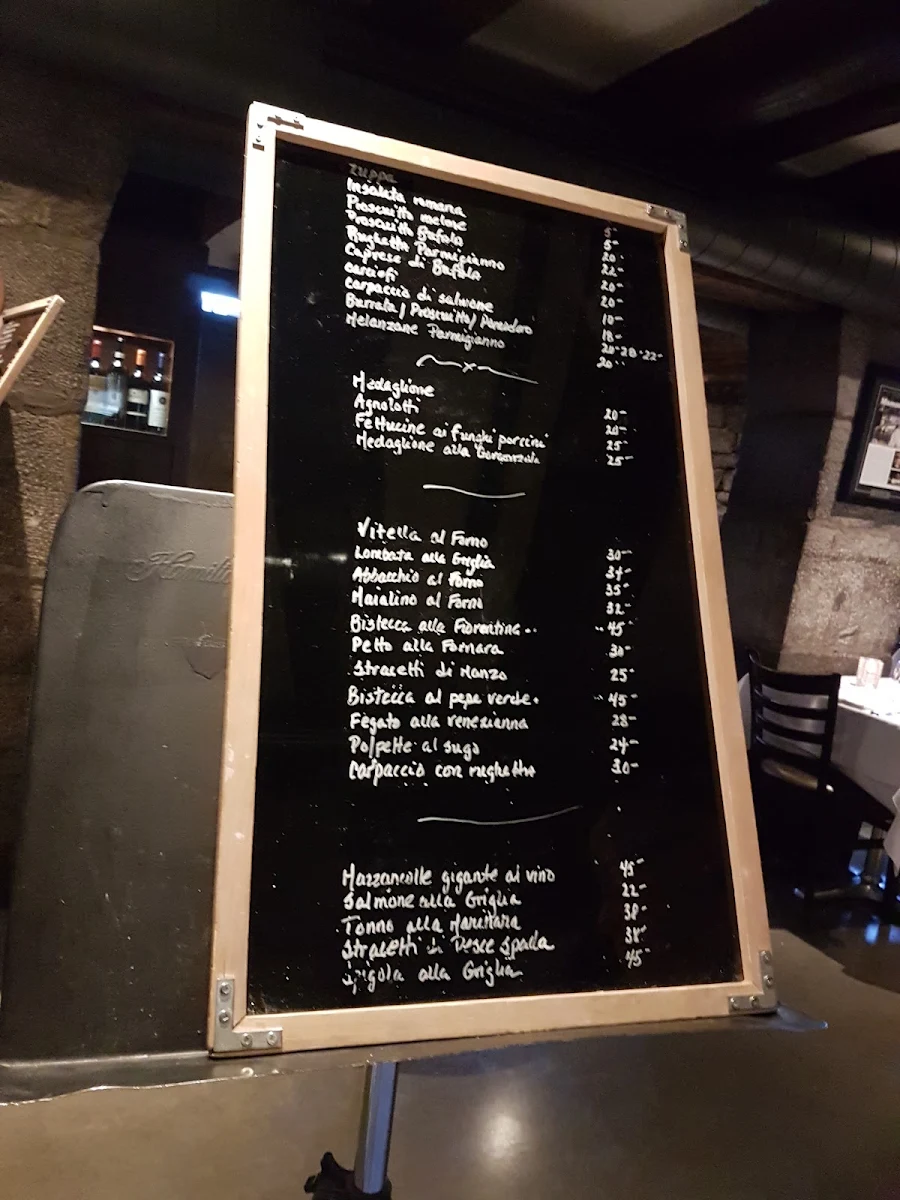 Zuppa 5-
Insalata romana 5-
Prosciutto melone 20-
Prosciutto Bufala 22-
Rughetta Parmigianno 20-
Caprese di Bufala 20-
carciofi 10-
carpaccio di salmone 18-
Burrata/Prosciutto/Pomodoro 20-20-22-
Melanzane Parmigianno 20-
Medaglione 20-
Agnolotti 20-
Fettucine ai funghi porcini 25-
Medaglione alla Gorgonzola 25-
Vitella al Forno 30-
Lombata alla Griglia 34-
Abbacchio al Forno 35-
Maialino al Forno 32-
Bistecca alla Fiorentina .. .. 45-
Petto alla Fornara 30-
Stracetti di Manzo 25-
Bistecca al pepe verde. .. 45-
Fegato alla venezianna 28-
Polpette al sugo 24-
Carpaccio con rughetta 30-
Mazzancolle gigante al vino 45-
Salmone alla Griglia 22-
Tonno alla Marinara 38-
Stracetti di Pesce Spada 38-
Spigola alla Griglia 45-